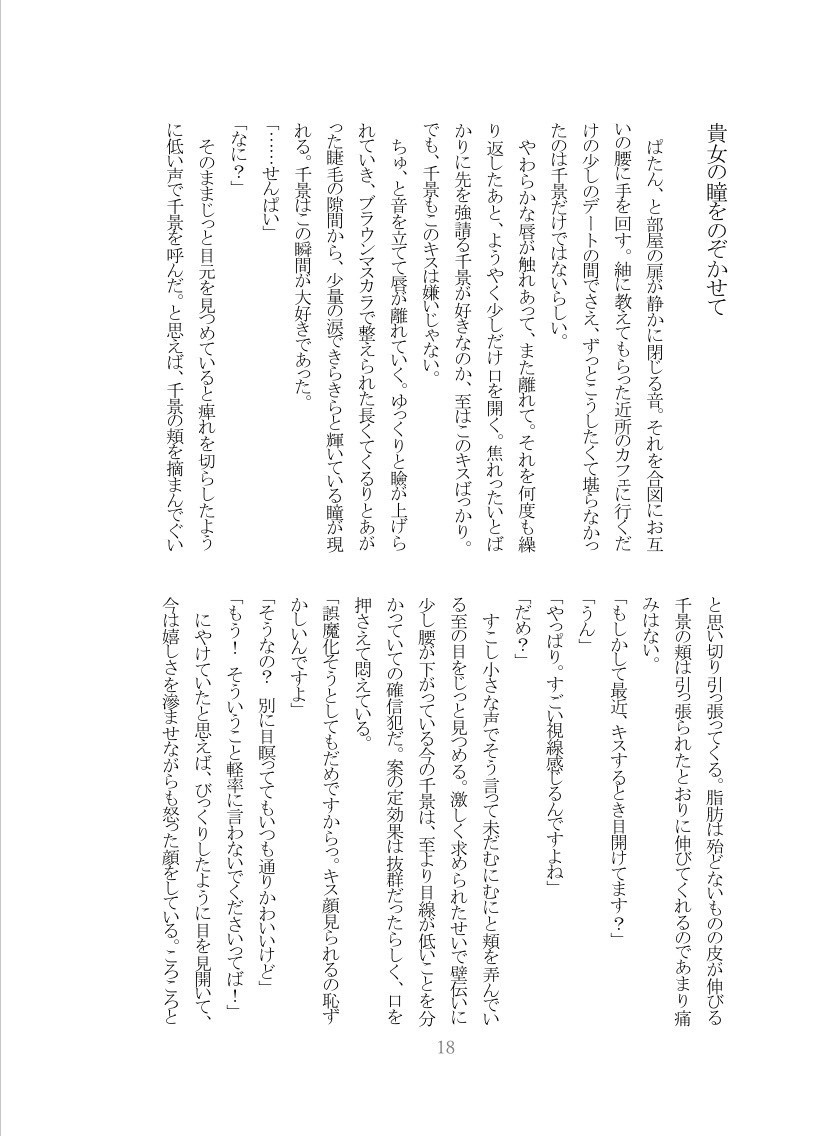 貴女の瞳をのぞかせて
　ぱたん、と部屋の扉が静かに閉じる音。それを合図にお互
いの腰に手を回す。紬に教えてもらった近所のカフェに行くだ
けの少しのデートの間でさえ、ずっとこうしたくて堪らなかっ
たのは千景だけではないらしい。
　やわらかな唇が触れあって、また離れて。それを何度も繰
り返したあと、ようやく少しだけ口を開く。焦れったいとば
かりに先を強請る千景が好きなのか、至はこのキスばっかり。
でも、千景もこのキスは嫌いじゃない。
　ちゅ、と音を立てて唇が離れていく。ゆっくりと瞼が上げら
れていき、ブラウンマスカラで整えられた長くてくるりとあが
った睫毛の隙間から、少量の涙できらきらと輝いている瞳が現
れる。千景はこの瞬間が大好きであった。
「……せんぱい」
「なに？」
　そのままじっと目元を見つめていると痺れを切らしたよう
に低い声で千景を呼んだ。と思えば、千景の頬を摘まんでぐい
と思い切り引っ張ってくる。脂肪は殆どないものの皮が伸びる
千景の頬は引っ張られたとおりに伸びてくれるのであまり痛
みはない。
「もしかして最近、キスするとき目開けてます？」
「うん」
「やっぱり。すごい視線感じるんですよね」
「だめ？」
　すこし小さな声でそう言って未だむにむにと頬を弄んでい
る至の目をじっと見つめる。激しく求められたせいで壁伝いに
少し腰が下がっている今の千景は、至より目線が低いことを分
かっていての確信犯だ。案の定効果は抜群だったらしく、口を
押さえて悶えている。
「誤魔化そうとしてもだめですからっ。キス顔見られるの恥ず
かしいんですよ」
「そうなの？　別に目瞑っててもいつも通りかわいいけど」
「もう！　そういうこと軽率に言わないでくださいってば！」
　にやけていたと思えば、びっくりしたように目を見開いて、
今は嬉しさを滲ませながらも怒った顔をしている。ころころと
18